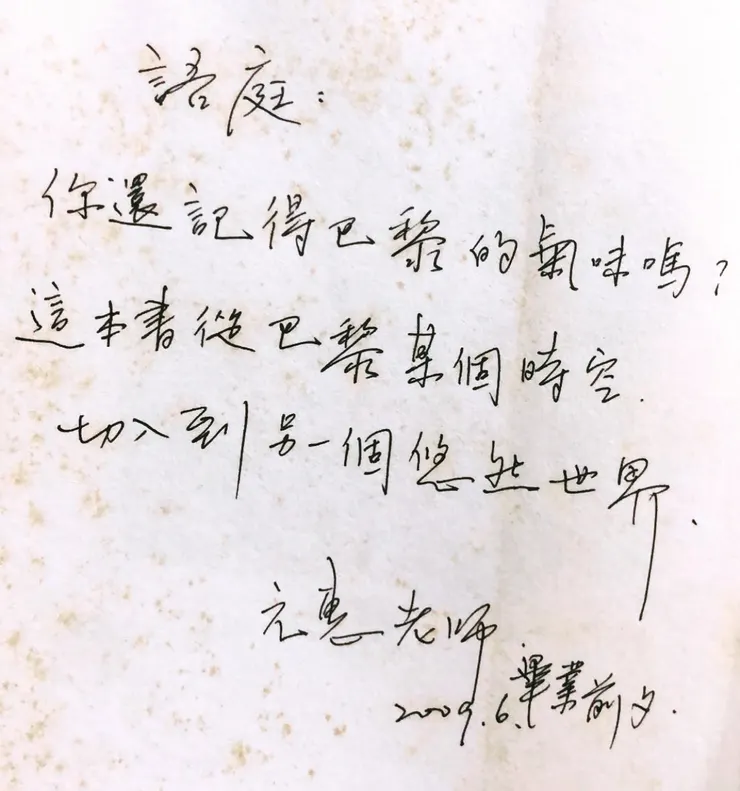 語庭：
你還記得巴黎的氣味嗎？
這本書從巴黎某個時空.
切入到另一個悠然世界.
元惠老師
2009.6.畢業前夕.